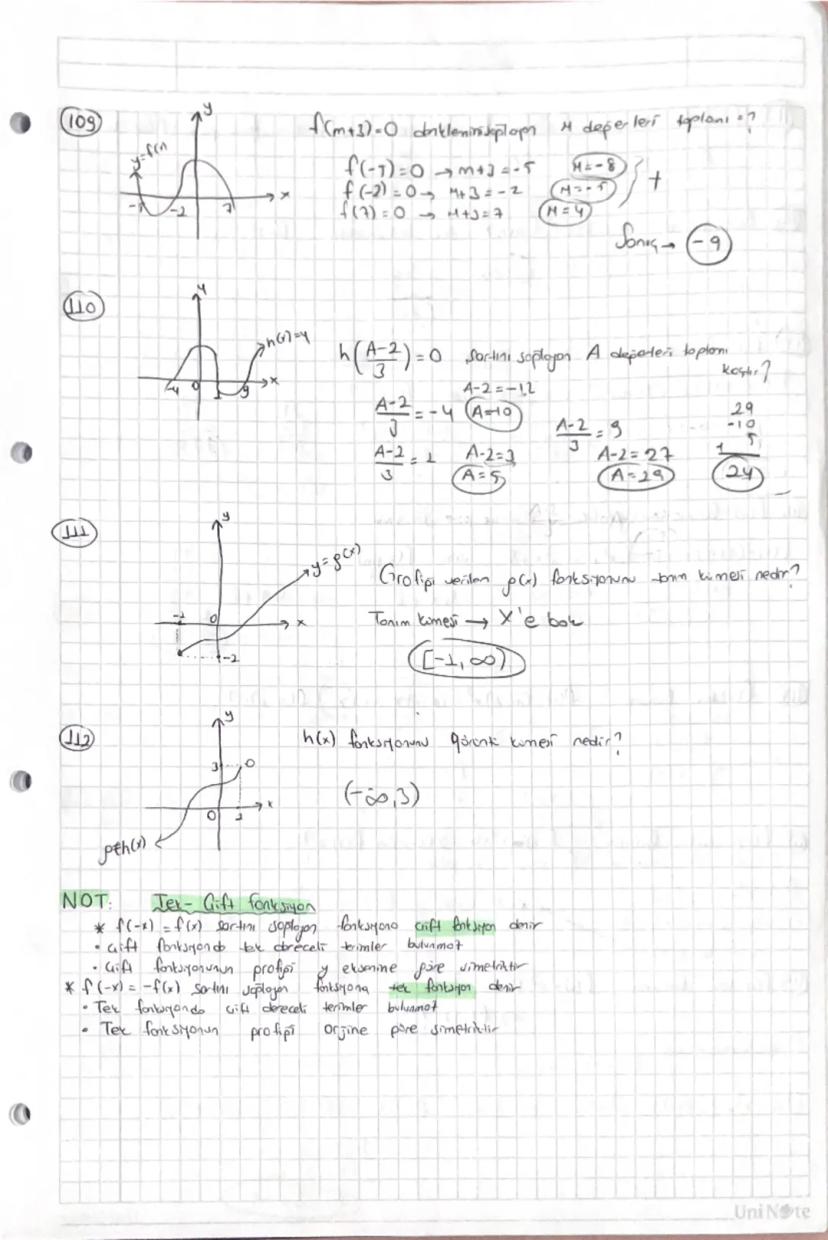 109
y
y=f(x)
-2
7
x
f(m+3)=0 denklemini sağlayan M değerleri toplamı =?
=0 → m+3=-5 M=-8
f(-2)=0 → M+3=-2 M=-5
f(7)=0 → M+3=7 M=4
+
Sonuç → -9
110
y
h(x)=y
-4 0 1 9 x
h(A-2/3)=0 şartını sağlayan A değerleri toplamı
kaçtır?
A-2=-12
A-2/3 = -4 A=-10
A-2/3 = 1 A-2=3
A=5
A-2/3 = 9
A-2=27
A=29
29
-10
5
24
111
y
y=g(x)
-1 0 x
-2
Grafiği verilen g(x) fonksiyonunu tanım kümesi nedir?
Tanım kümesi → X'e bak
[-1, ∞)
112
y
3
0 x
h(x)
h(x) fonksiyonunu görüntü kümesi nedir?
(-∞,3)
NOT: Tek-Çift fonksiyon
* f(-x) = f(x) şartını sağlayan fonksiyona çift fonksiyon denir
• Çift fonksiyonda tek dereceli terimler bulunmaz
• Çift fonksiyonunun grafiği y eksenine göre simetriktir
* f(-x) = -f(x) şartını sağlayan fonksiyona tek fonksiyon denir
• Tek fonksiyonda çift dereceli terimler bulunmaz
• Tek fonksiyonun grafiği orjine göre simetriktir
UniNote